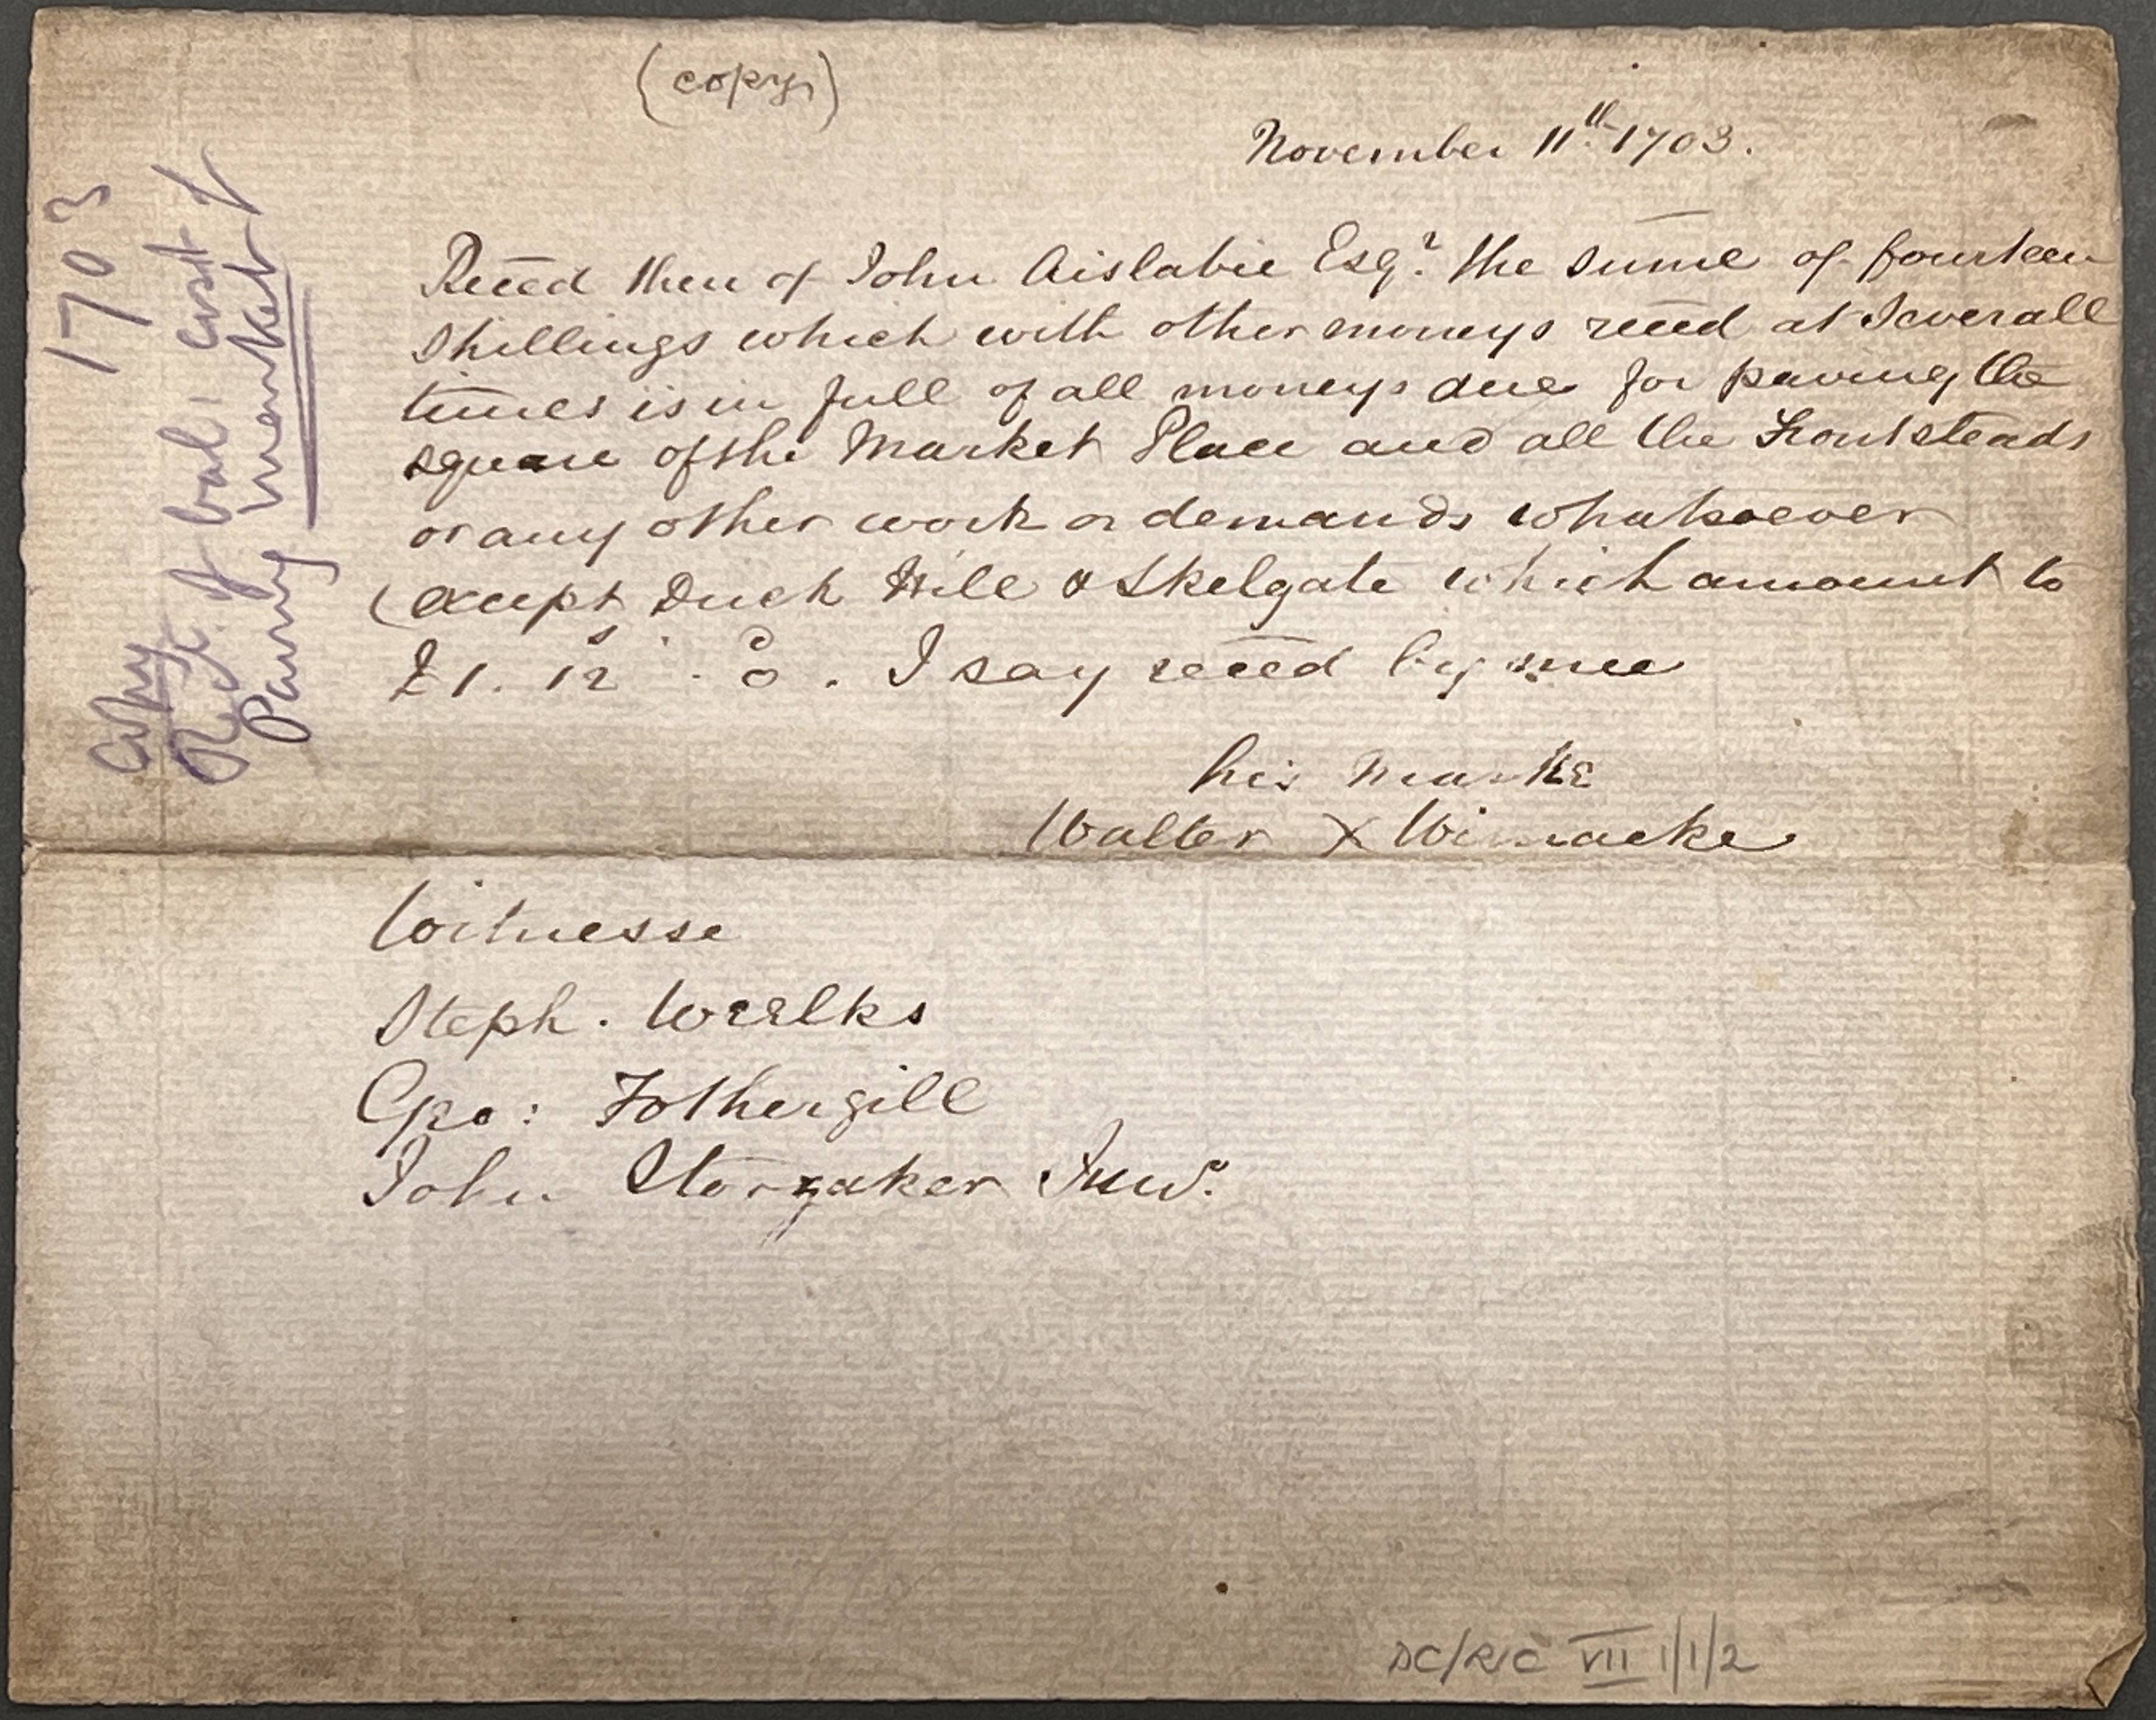 (copy)
November 11th. 1703.
Reced then of John Aislabie Esqr. the sume of fourteen
shillings which with other moneys reced at severall
times is in full of all moneys due for paving the
square of the Market Place and all the Frontsteads
or any other work or demands whatsoever
(except Duck Hill & Skelgate which amount to
£1. 12s. 0d. I say reced by mee
his Marke
Walter X Wimacke
Witnesse
Steph. Weelks
Geo: Fothergill
John Storzaker Junr.
1703
Copy
Rect. of bal: cost of
Paving Market
DC/RIC VII 1/1/2